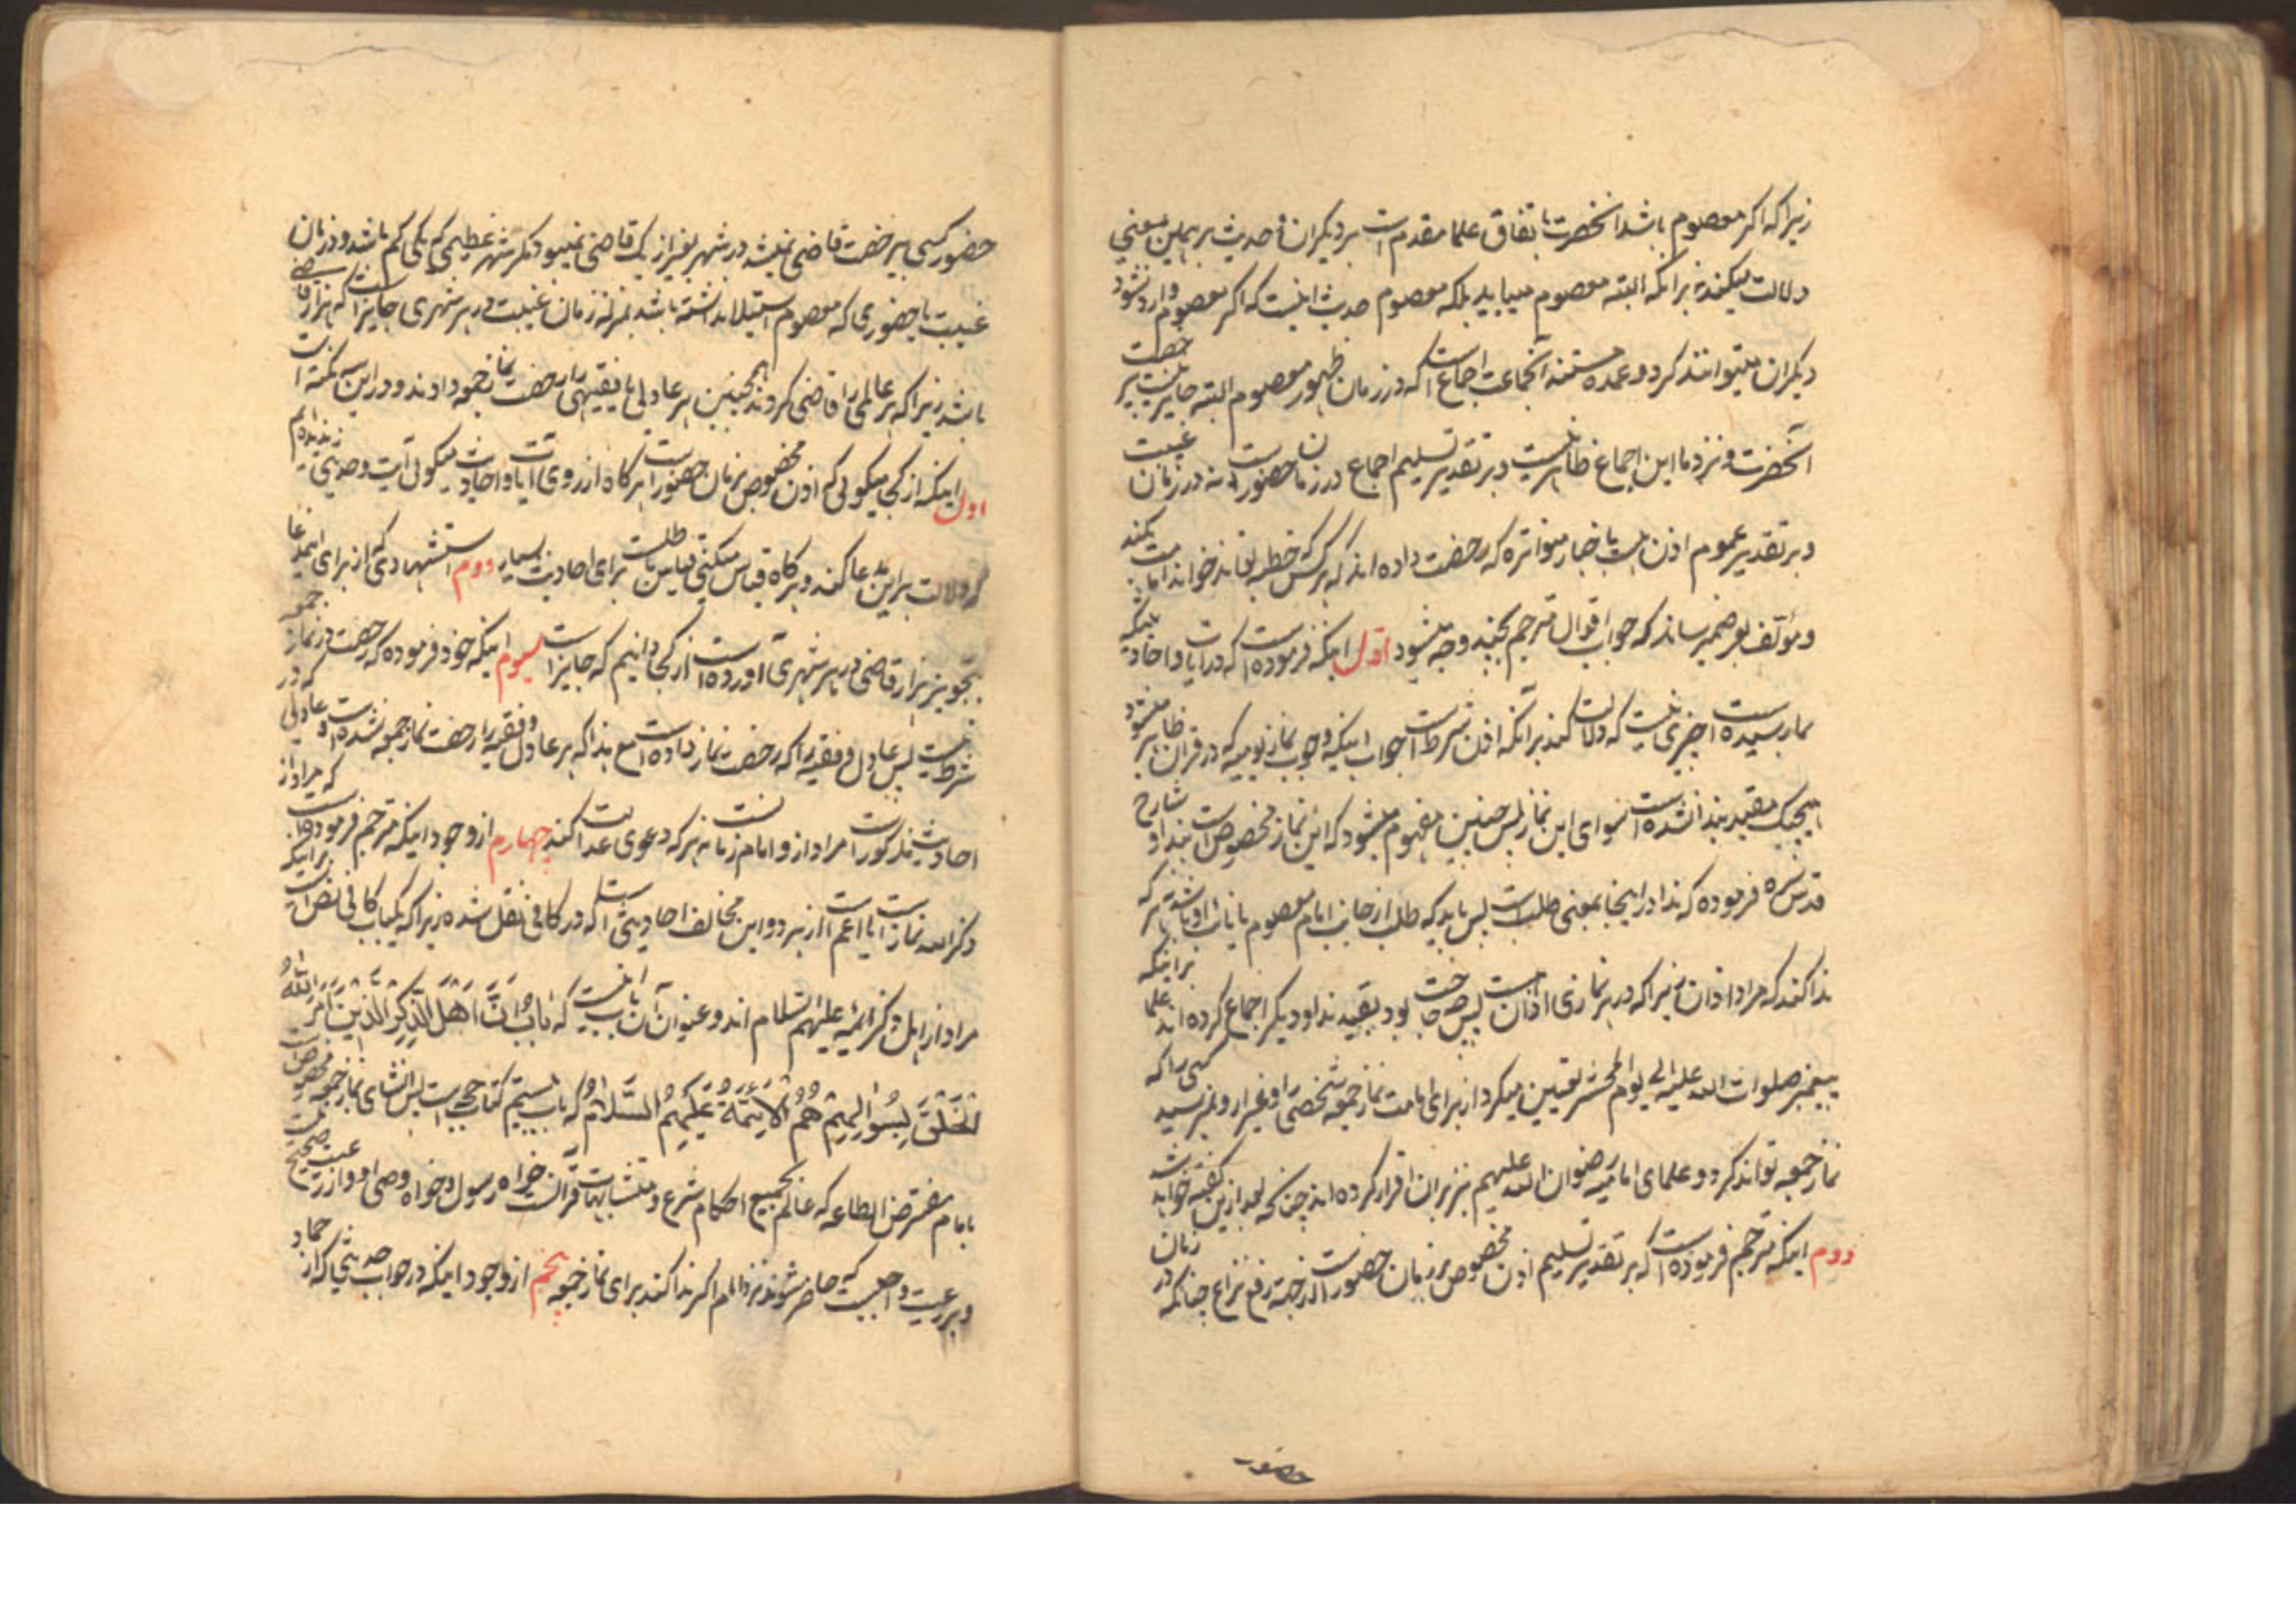 زیرا که اکر معصوم باشد انحضرت باتفاق علما مقدم است بر دیکران و حدیث بر همین معنی
دلالت میکند نه برانکه البته معصوم میباید بلکه معصوم حدیث اینست که اکر معصوم وارد شود
دیکران نمیتوانند کرد و عمده مستند آنجماعت اجماع است که در زمان ظهور معصوم البته جایز نیست بی رخصت
آنحضرت و نزد ما این اجماع ظاهر نیست و بر تقدیر تسلیم اجماع در زمان حضور است نه در زمان غیبت
و بر تقدیر عموم اذن هست باخبار متواتره که رخصت داده اند که هر کس که خطبه تواند خواند امامت بکند
و مؤلف بعرض میرساند که جواب اقوال مترجم بچند وجه میشود اول اینکه فرموده است که در آیات و احادیثیکه
بما رسیده است چیزی نیست که دلالت کند برآنکه اذن شرطست جواب اینکه وجوب نماز یومیه که در قران ظاهر میشود
هیچیک مقید بندا نشده است سوای این نماز پس چنین مفهوم میشود که این نماز مخصوص است بندا و شارح
قدس سره فرموده که ندا در اینجا بمعنی طلب است پس باید که طلب از جانب امام معصوم یا نایب او باشد نه هر که
ندا کند که مراد اذان نیز که در هر نمازی اذان هست پس چه حاجت بود بقید ندا و دیکر اجماع کرده اند علما برانیکه
پیغمبر صلوات الله علیه الی یوم المحشر تعیین میکرد از برای امامت نماز جمعه شخصی را و غیر او نمیرسید کسی را که
نماز جمعه تواند کرد و علمای امامیه رضوان الله علیهم نیز بران اقرار کرده اند چنانکه بعد ازین کفته خواهد شد
دوم اینکه مترجم فرموده است که بر تقدیر تسلیم اذن مخصوص بزمان حضور است از جهة رفع نزاع چنانکه در زمان
حضور
حضور کسی بیرخصت قاضی نمیشد در شهر بغیر از یک قاضی نمیبود مکر شهر عظیمی که یکی کم باشد و در زمان
غیبت یا حضوری که معصوم استیلا نداشته باشد بمنزله زمان غیبت در هر شهری جایز است که هزار قاضی
باشد زیرا که هر عالمی را قاضی کردند همچنین هر عادلی یا فقیهی را رخصت نماز جمعه دادند و در این سه نکته است
اول اینکه از کجا میکوئی که اذن مخصوص بزمان حضور است هرکاه از روی آیات و احادیث میکوئی آیت و حدیثی ندیده ایم
که دلالت براین مدعا کند و هرکاه قیاس میکنی قیاس باطلست برای احادیث بسیار دوم استشهادی که از برای این مدعا
بتجویز هزار قاضی در هر شهری آورده است از کجا دانیم که جایز است سیوم اینکه خود فرموده که رخصت در نماز جمعه
شرط نیست پس عادل و فقیه را که رخصت نماز داده است مع هذا که هر عادل و فقیه را رخصت نماز جمعه نشده است و عادلی که در
احادیث مذکور است مراد از و امام زمانست نه هر که دعوی عدالت کند چهارم از وجوه اینکه مترجم فرموده است که مراد از
ذکر الله نماز است یا اعم است از هر دو این مخالف احادیثی است که در کافی نقل شده زیرا که یکباب کافی نص است برانیکه
مراد از اهل ذکر ائمه علیهم السلام اند و عنوان آن باب اینست که باب ان اهل الذکر الذین امر الله
الخلق بسؤالهم هم الائمة علیهم السلام که باب بیستم کتاب حجت است پس انشای نماز جمعه مخصوص است
بامام مفترض الطاعه که عالم بجمیع احکام شرع و متشابهات قرآنست خواه رسول و خواه وصی او و از رعیت صحیح نیست
و بر رعیت واجبست که حاضر شوند نزد امام اکر ندا کند برای نماز جمعه پنجم از وجوه اینکه در جواب حدیثی که از حماد